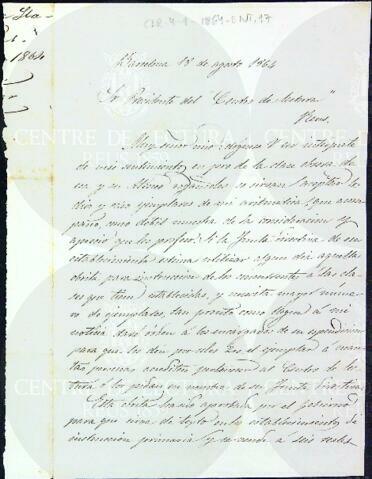 CLR-4-1-1864-ENT.17
1864
Barcelona 18 de agosto 1864
Sr Presidente del "Centro de Lectura"
Reus.
Muy señor mio: dignese V ser intérprete
de mis sentimientos en pro de la clase obrera
y se sirvan aceptar los
diez y seis ejemplares de mi aritmética que acom
paño, como debil muestra de la consideracion y
aprecio que les profeso. Si la Junta directiva de ese
establecimiento estima utilizar algun dia aquella
obrita para instruccion de los concurrentes á las cla
ses que tiene establecidas, y necesita mayor núme
ro de ejemplares, tan pronto como llegue á mi
noticia daré orden á los encargados de su espendicion
para que los den por seis el ejemplar á cuan
tas personas pertenezcan al Centro de lec
tura ó los pidan en nombre de su Junta directiva
Esta obrita ha sido aprobada por el Gobierno
para que sirva de texto en los establecimientos de
instruccion primaria y se vende á seis reales
CENTRE DE LECTURA
REUS